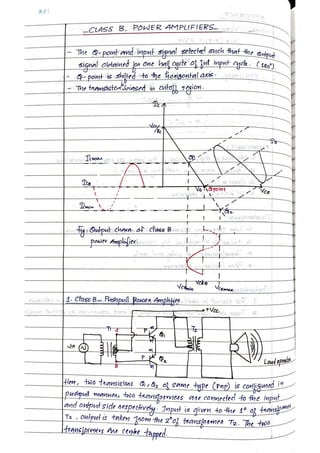 CLASS B. POWER AMPLIFIERS
- The Q-point and input signal selected such that the output
signal obtained for one half cycle of full input cycle. (180°)
- Q-point is shifted to the horizontal axis.
- The transistor biased in cutoff region.
Ic
VCE
fig: Output charac. of class B
power Amplifier
1. Class B - Pushpull Power Amplifier
+Vcc
T1
T2
P
n
Q1
Q2
Vin
Loud speaker
Here, two transistors Q1 Q2 of same type (PNP) is configured in
pushpull manner, two transformers are connected to the input
and output side respectively. Input is given to the 1° of transformer
T1, output is taken from the 2° of transformer T2. The two
transformers are centre tapped.